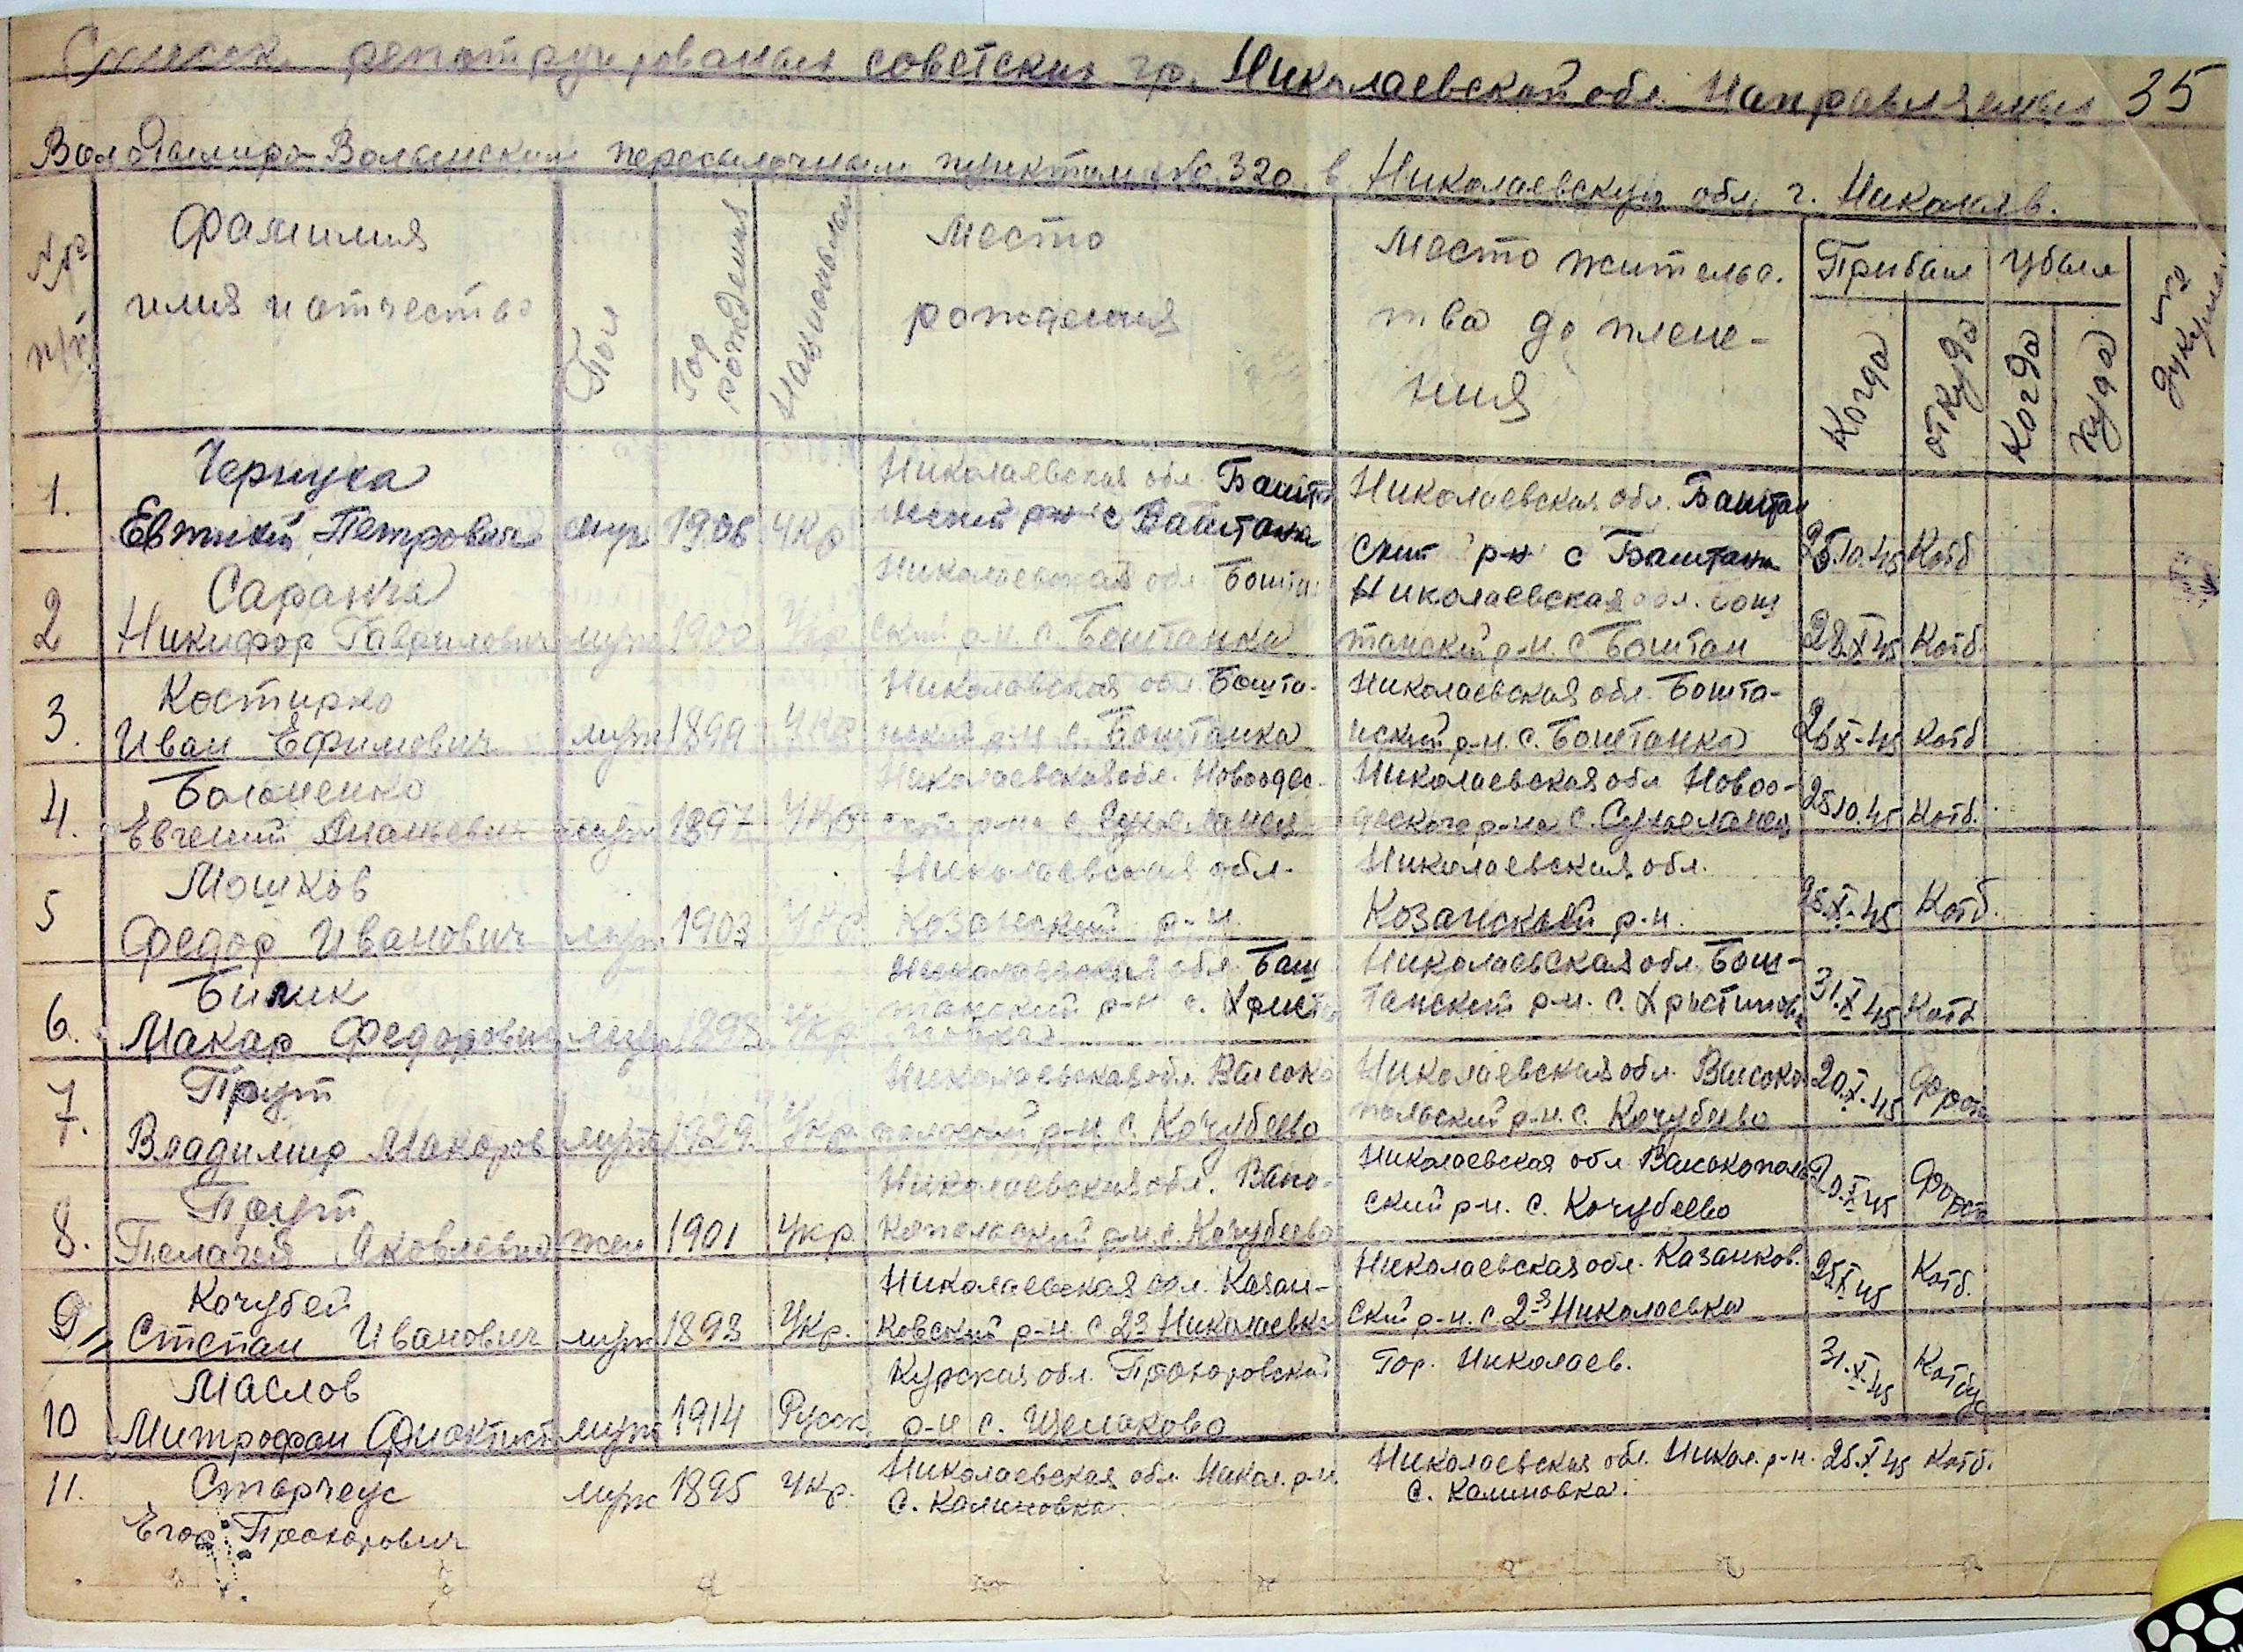 Список репатруированых советских гр. Николаевской обл. Направляемых 35
Володымиро-Волынским пересылочным пунктом No. 320 в Николаевскую обл. г. Николаев.
№№ п/п
Фамилия
имя и отчество
Пол
Год рождения
Национальн
Место
рождения
Место жительс.
тва до плене-
ния
Прибыл
Когда
откуда
Убыл
Когда
куда
1.
Евтихий Петрович муж 1906 Укр
Николаевская обл. Башта
нский р-н с Баштанка
Николаевская обл. Баштан
ский р-н с Баштанка
10.45 Котб
2
Саранча
Никифор Гаврилович муж 1900 Укр.
Николаевская обл. Башта
ский р-н. с. Баштанка
Николаевская обл. Баш
танский р-н. с Баштан
28.X 45 Котб.
3.
Костирко
Иван Ефимович муж 1899 Укр
Николаевская обл. Башта-
нский р-н с. Баштанка
Николаевская обл. Башта-
нский р-н. с. Баштанка
X-45 Котб
4.
Евгений Ананьевич муж 1897 Укр
Николаевская обл. Новоодес-
р-на с.
Николаевская обл Новоо-
десского р-на с.
25 10.45 Котб.
5
Мошков
Федор Иванович муж 1903 Укр
Николаевская обл.
Козанский р-н.
Николаевская обл.
Козанский р-н.
25.X-45 Котб.
6.
Билик
Макар Федорович муж 1893 Укр
Николаевская обл. Баш
танский р-н с. Христо
Николаевская обл. Баш-
танский р-н. с.
31.X 45 Котб
7.
Прут
Владимир Макаров муж 1929 Укр
Николаевская обл. Высоко
польский р-н с. Кочубеево
Николаевская обл. Высоко
польский р-н. с. Кочубеево
20.X-45 Форст
8.
Прут
Пелагея Яковлевна жен 1901 Укр.
Николаевская обл. Высо-
копольский р-н. с. Кочубеево
Николаевская обл Высокополь
ский р-н. с. Кочубеево
20.X 45 Форст
9
Кочубей
Степан Иванович муж 1893 Укр.
Николаевская обл. Казан-
ковский р-н. с 2я Николаевка
Николаевская обл. Казанков.
ский р-н. с. 2-я Николаевка
25X 45 Котб.
10
Маслов
Митрофан Фиоктист муж 1914 Русск
Курская обл. Прохоровский
р-н с. Щелоково
Гор. Николаев.
31.X.45 Котбус
11.
Старчеус
Егор Прохорович
муж 1895 Укр.
Николаевская обл. Никол. р-н.
с. Калиновка.
Николаевская обл. Никол. р-н.
с. Калиновка.
25.X 45 Котб.